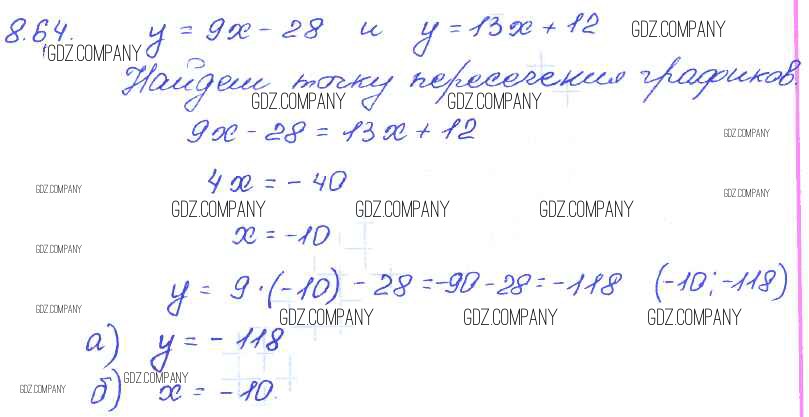 8.64. y = 9x - 28 и y = 13x + 12 GDZ.COMPANY
GDZ.COMPANY
Найдем точку пересечения графиков.
GDZ.COMPANY GDZ.COMPANY
9x - 28 = 13x + 12 GDZ.COMPANY
GDZ.COMPANY 4x = - 40 GDZ.COMPANY
GDZ.COMPANY GDZ.COMPANY GDZ.COMPANY
GDZ.COMPANY x = -10
y = 9 · (-10) - 28 = -90 - 28 = -118 (-10; -118)
GDZ.COMPANY GDZ.COMPANY GDZ.COMPANY GDZ.COMPANY
а) y = - 118
GDZ.COMPANY
GDZ.COMPANY б) x = - 10.